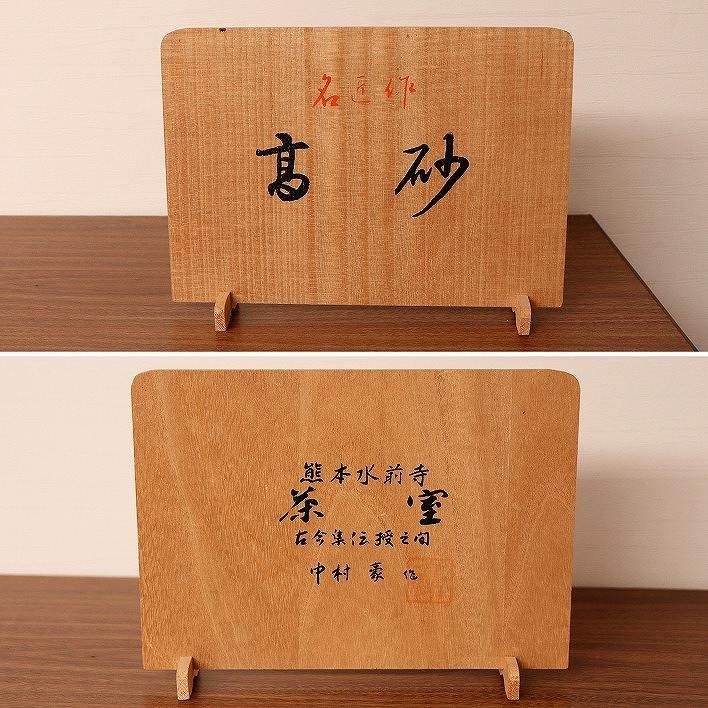 名匠作
高砂
熊本水前寺
茶室
古今集伝授之間
中村豪作